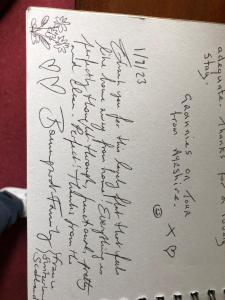 adequate. Thanks for a lovely
stay.
Grannies on Tour
from Ayrshire.
x ♡
1/7/23
Thank you for this lovely flat that feels
like home away from home! Everything is
perfectly thought through, functional, pretty
and clean. Perfect! Thanks from the
Family